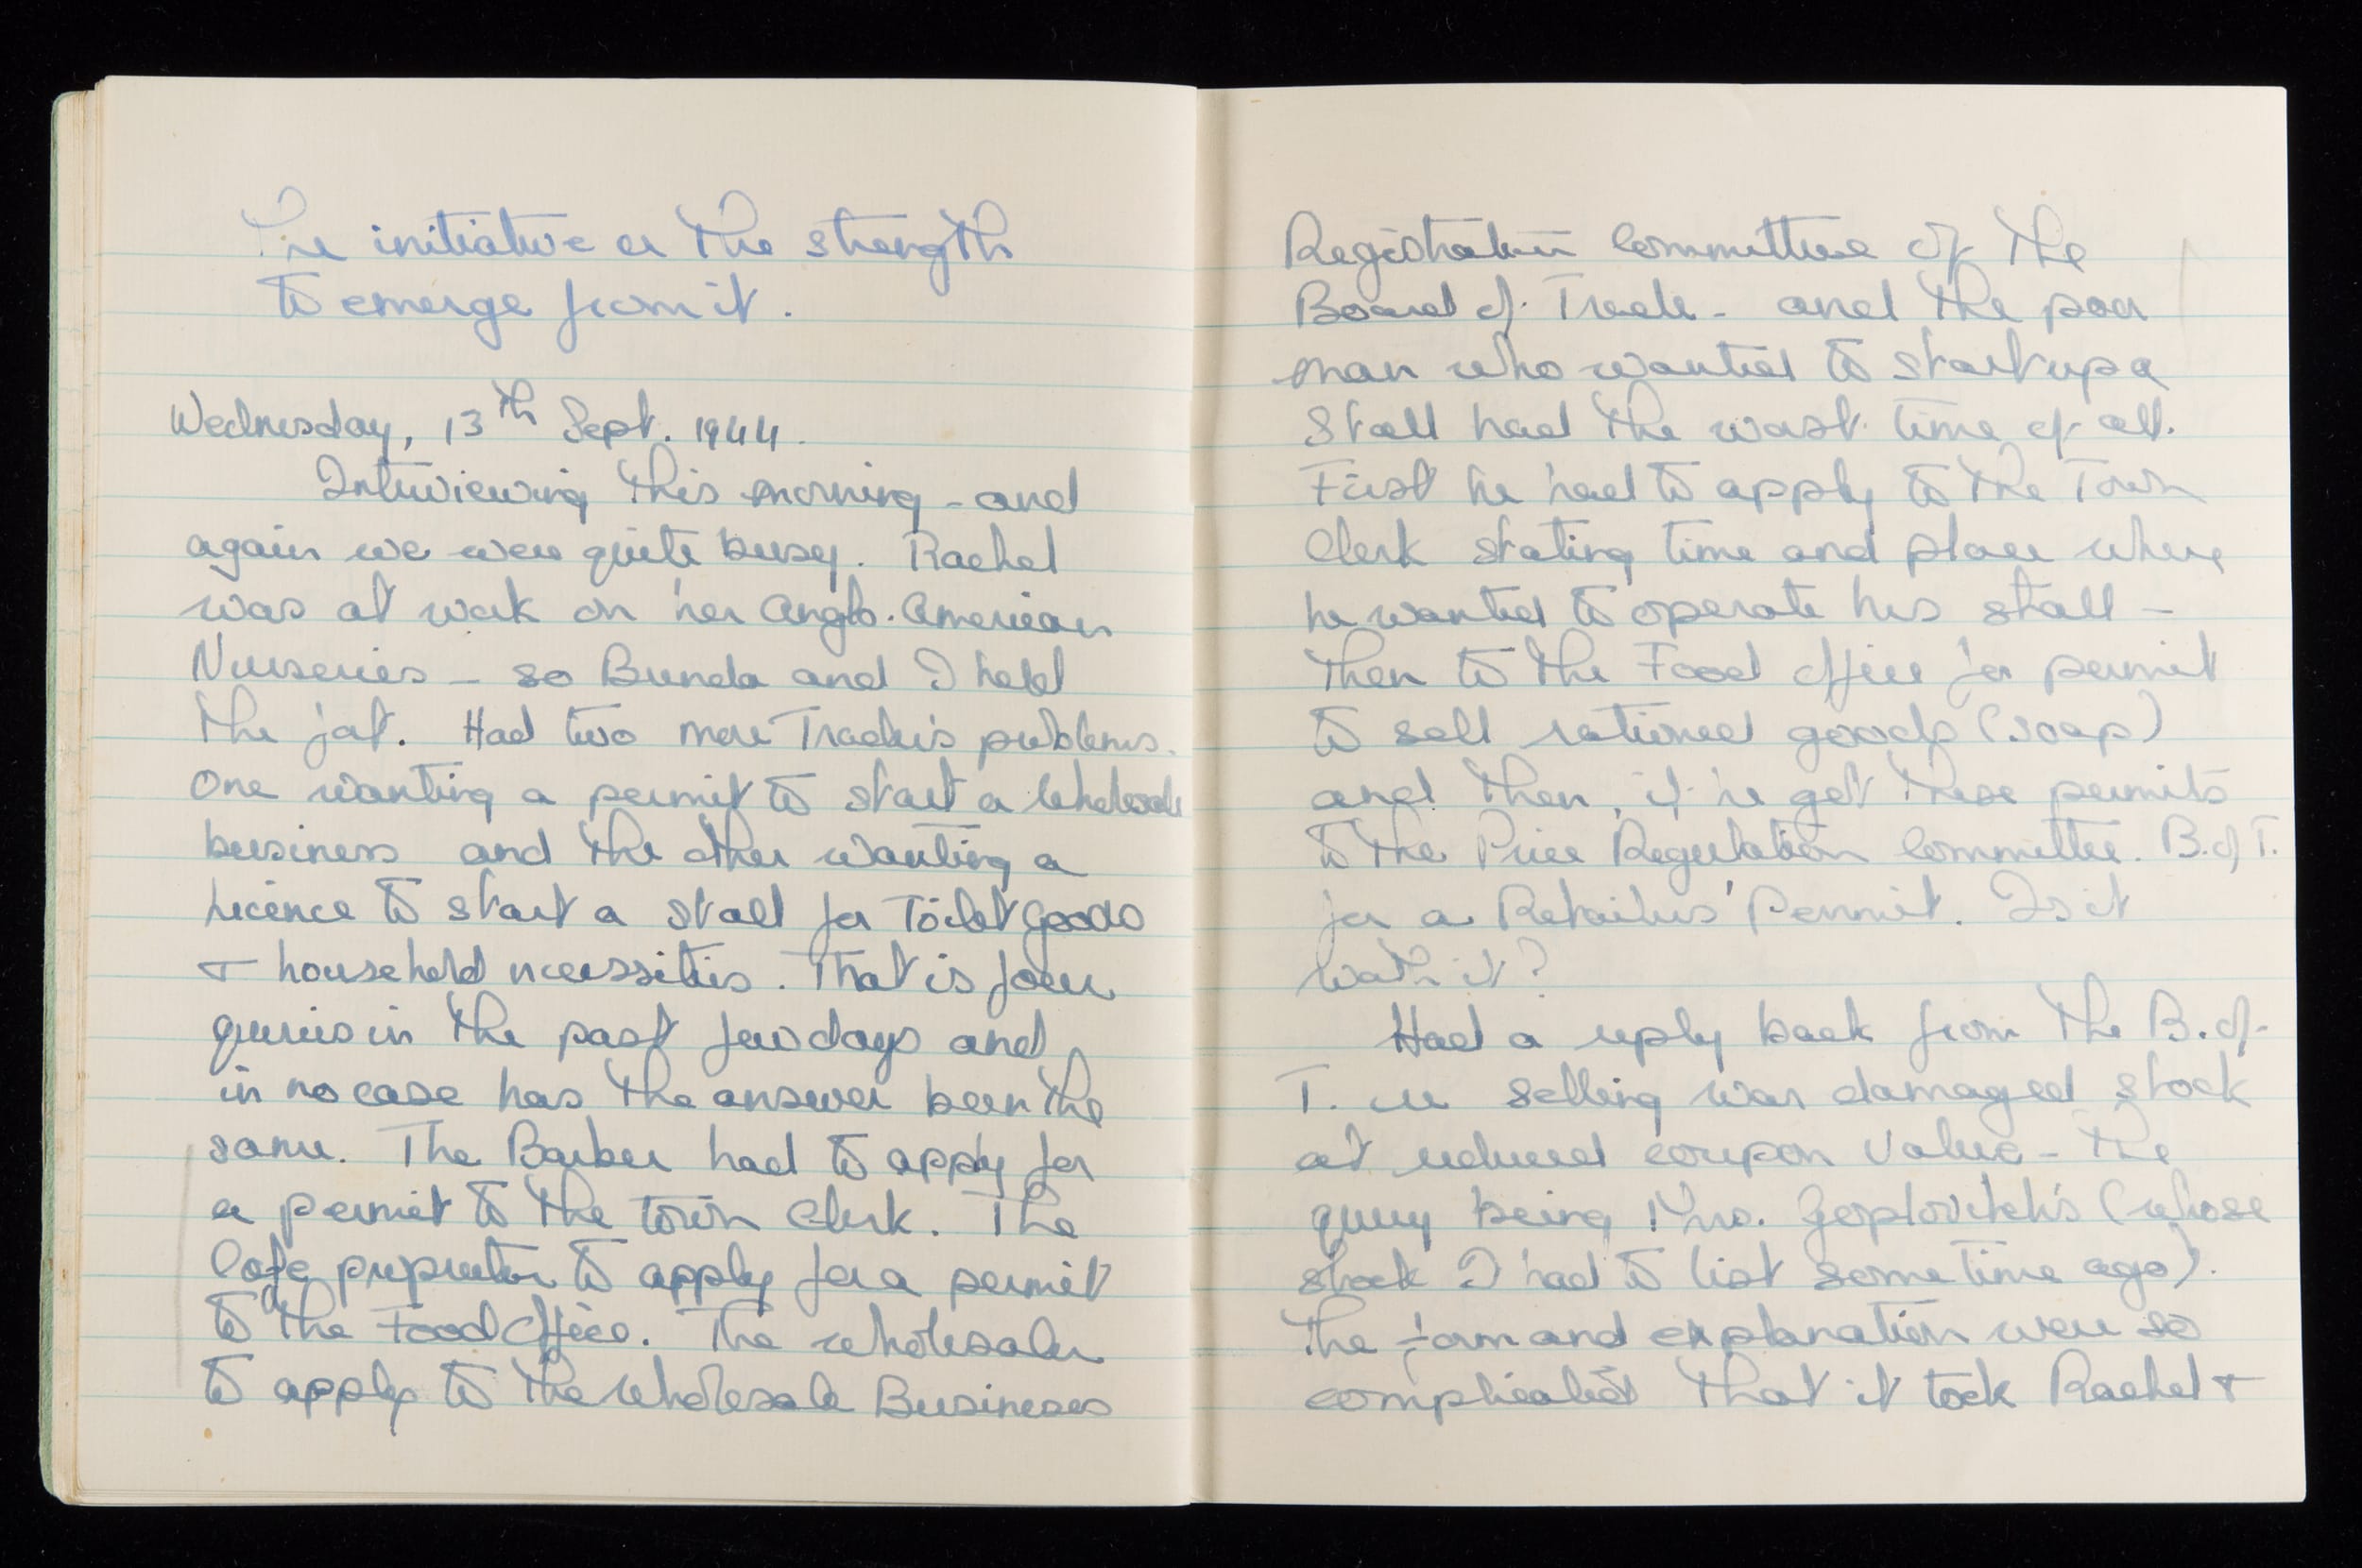 The initiative or the strength
to emerge from it.
Wednesday, 13th Sept. 1944.
Interviewing this morning - and
again we were quite busy. Rachel
was at work on her Anglo-American
Nurseries - so Bunda and I held
the fort. Had two more Trader's problems.
One wanting a permit to start a Wholesale
business and the other wanting a
licence to start a stall for Toilet Goods
+ household necessities. That is four
queries in the past few days and
in no case has the answer been the
same. The Barber had to apply for
a permit to the town Clerk. The
Cafe proprietor to apply for a permit
to the Food Office. The wholesaler
to apply to the wholesale Businesses
Registration Committee of the
Board of Trade - and the poor
man who wanted to start up a
Stall had the worst time of all.
First he had to apply to the Town
Clerk stating time and place where
he wanted to operate his stall -
then to the Food Office for permit
to sell rationed goods (soap)
and then, if he got these permits
to the Price Regulation Committee. B. of T.
for a Retailers' Permit. Is it
worth it?
Had a reply back from the B. of
T. re selling war damaged stock
at reduced coupon value - the
query being Mrs. (whose
stock I had to list some time ago).
The form and explanation were so
complicated that it took Rachel +